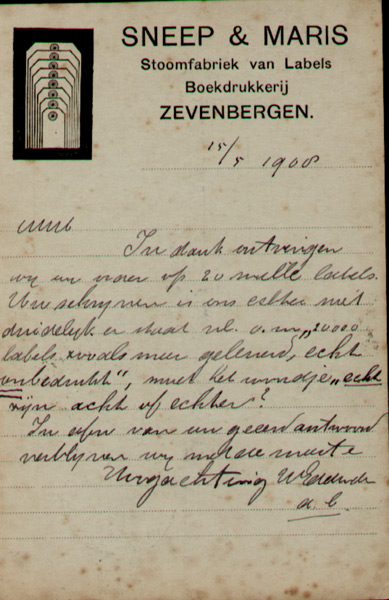 SNEEP & MARIS
Stoomfabriek van Labels
Boekdrukkerij
ZEVENBERGEN.
15/5 1908
In dank ontvingen
wij uw order op 20 mille labels.
Uw schrijven is ons echter niet
duidelijk er staat nl. o.m. „20000
labels zooals meer geleverd, echt
onbedrukt", moet het woordje „echt
zijn acht of echter?
In afw. van uw geëerd antwoord
verblijven wij met de meeste
Hoogachting